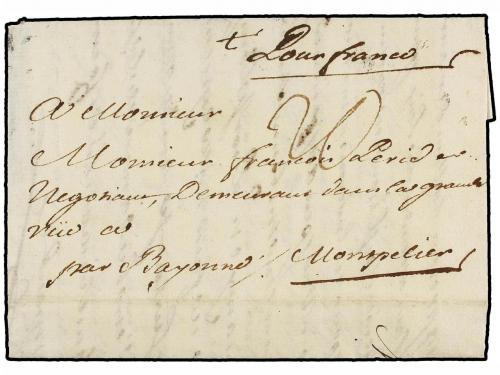 Pour france
A Monsieur
Monsieur francois
Negotiant, Demeurant dans la grande
rüe a
par Bayonne / Montpelier